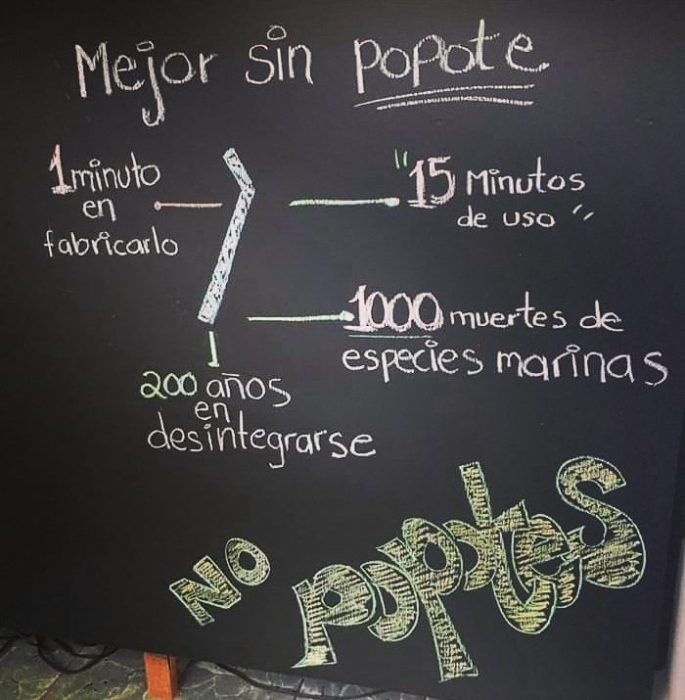 Mejor sin popote
1 minuto
en
fabricarlo
"15 Minutos
de uso"
1000 muertes de
especies marinas
200 años
en
desintegrarse
NO popotes